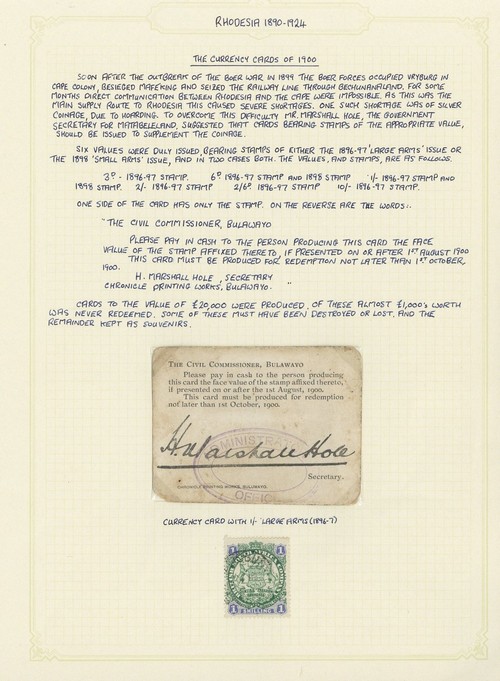 RHODESIA 1890-1924
THE CURRENCY CARDS OF 1900
SOON AFTER THE OUTBREAK OF THE BOER WAR IN 1899 THE BOER FORCES OCCUPIED VRYBURG IN
CAPE COLONY, BESIEGED MAFEKING AND SEIZED THE RAILWAY LINE THROUGH BECHUANALAND. FOR SOME
MONTHS DIRECT COMMUNICATION BETWEEN RHODESIA AND THE CAPE WERE IMPOSSIBLE. AS THIS WAS THE
MAIN SUPPLY ROUTE TO RHODESIA THIS CAUSED SEVERE SHORTAGES. ONE SUCH SHORTAGE WAS OF SILVER
COINAGE, DUE TO HOARDING. TO OVERCOME THIS DIFFICULTY MR. MARSHALL HOLE, THE GOVERNMENT
SECRETARY FOR MATABELELAND, SUGGESTED THAT CARDS BEARING STAMPS OF THE APPROPRIATE VALUE,
SHOULD BE ISSUED TO SUPPLEMENT THE COINAGE.
SIX VALUES WERE DULY ISSUED, BEARING STAMPS OF EITHER THE 1896-97 'LARGE ARMS' ISSUE OR
THE 1898 'SMALL ARMS' ISSUE, AND IN TWO CASES BOTH. THE VALUES, AND STAMPS, ARE AS FOLLOWS.
3D - 1896-97 STAMP. 6D 1896-97 STAMP AND 1898 STAMP 1/- 1896-97 STAMP AND
1898 STAMP. 2/- 1896-97 STAMP 2/6D 1896-97 STAMP 10/- 1896-97 STAMP.
ONE SIDE OF THE CARD HAS ONLY THE STAMP. ON THE REVERSE ARE THE WORDS:-
"THE CIVIL COMMISSIONER, BULAWAYO
PLEASE PAY IN CASH TO THE PERSON PRODUCING THIS CARD THE FACE
VALUE OF THE STAMP AFFIXED THERETO, IF PRESENTED ON OR AFTER 1ST AUGUST 1900
THIS CARD MUST BE PRODUCED FOR REDEMPTION NOT LATER THAN 1ST OCTOBER,
1900.
H. MARSHALL HOLE, SECRETARY
CHRONICLE PRINTING WORKS, BULAWAYO. "
CARDS TO THE VALUE OF £20,000 WERE PRODUCED. OF THESE ALMOST £1,000'S WORTH
WAS NEVER REDEEMED. SOME OF THESE MUST HAVE BEEN DESTROYED OR LOST, AND THE
REMAINDER KEPT AS SOUVENIRS.
THE CIVIL COMMISSIONER, BULAWAYO
Please pay in cash to the person producing
this card the face value of the stamp affixed thereto,
if presented on or after the 1st August, 1900.
This card must be produced for redemption
not later than 1st October, 1900.
H. Marshall Hole
Secretary.
CHRONICLE PRINTING WORKS, BULAWAYO.
OFFICE
CURRENCY CARD WITH 1/- 'LARGE ARMS' (1896-7)
1 1
BRITISH SOUTH AFRICA COMPANY
1 SHILLING 1